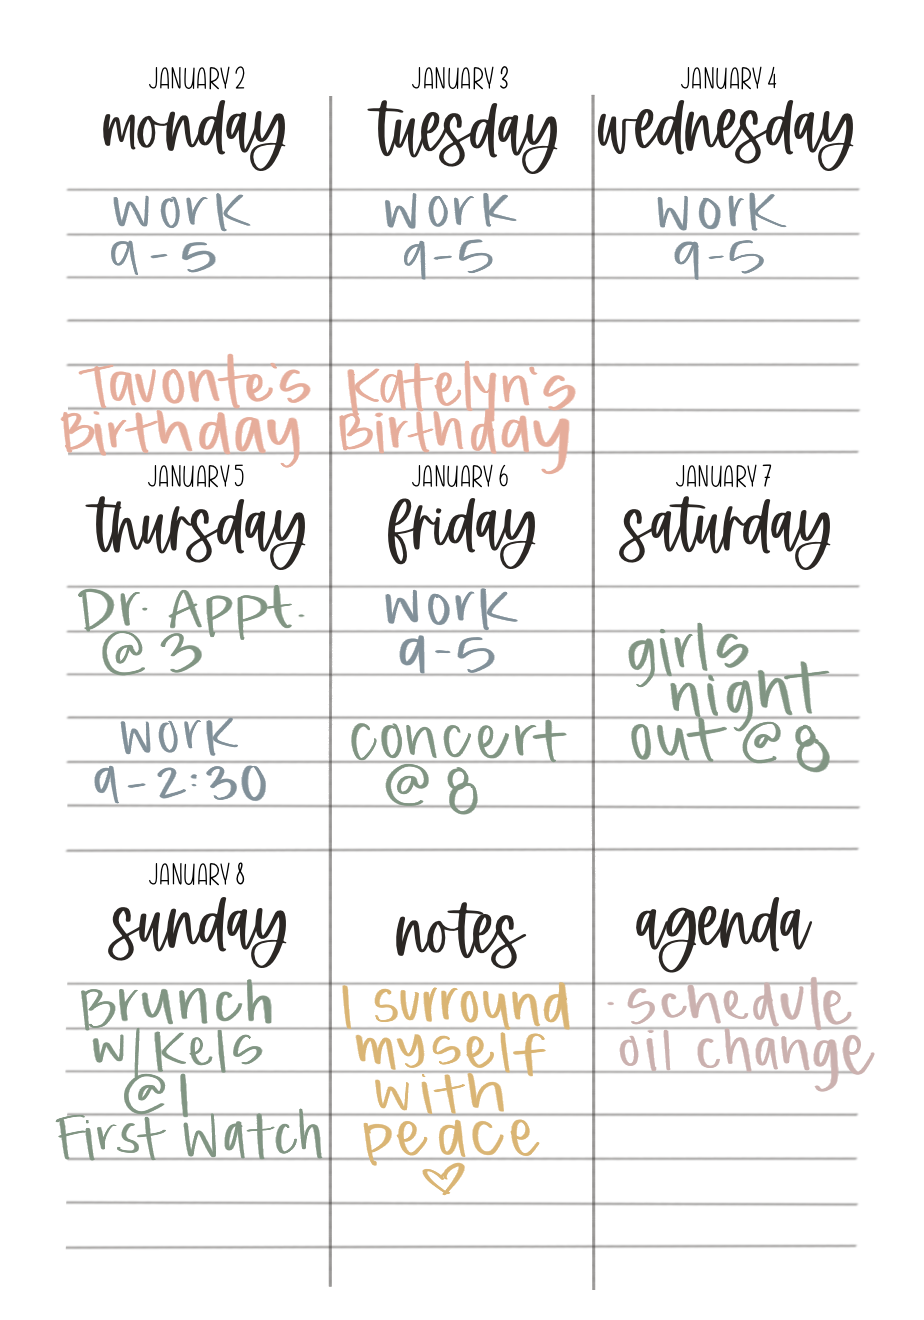 JANUARY 2
monday
work
9-5
Tavonte's
Birthday
JANUARY 3
tuesday
work
9-5
Katelyn's
Birthday
JANUARY 4
wednesday
work
9-5
JANUARY 5
thursday
Dr. Appt.
@ 3
work
9-2:30
JANUARY 6
friday
work
9-5
concert
@ 8
JANUARY 7
saturday
girls
night
out @ 8
JANUARY 8
sunday
Brunch
w/Kels
@ 1
First Watch
notes
I surround
myself
with
peace
♡
agenda
- schedule
oil change